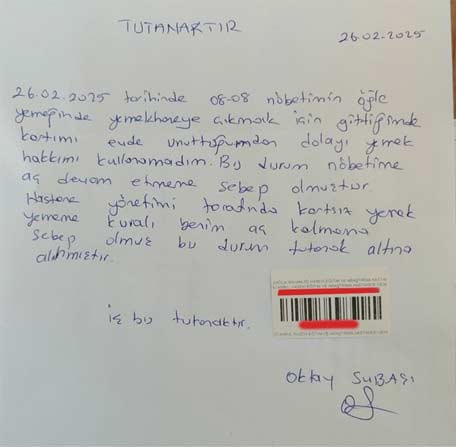 TUTANAKTIR
26.02.2025
26.02.2025 tarihinde 08-08 nöbetimin öğle
yemeğinde yemekhaneye çıkmak için gittiğimde
kartımı evde unuttuğumdan dolayı yemek
hakkımı kullanamadım. Bu durum nöbetime
aç devam etmeme sebep olmuştur.
Hastane yönetimi tarafında kartsız yemek
yememe kuralı benim aç kalmama
sebep olmuş bu durum tutanak altına
alınmıştır.
İş bu tutanaktır.
Oktay SUBAŞI